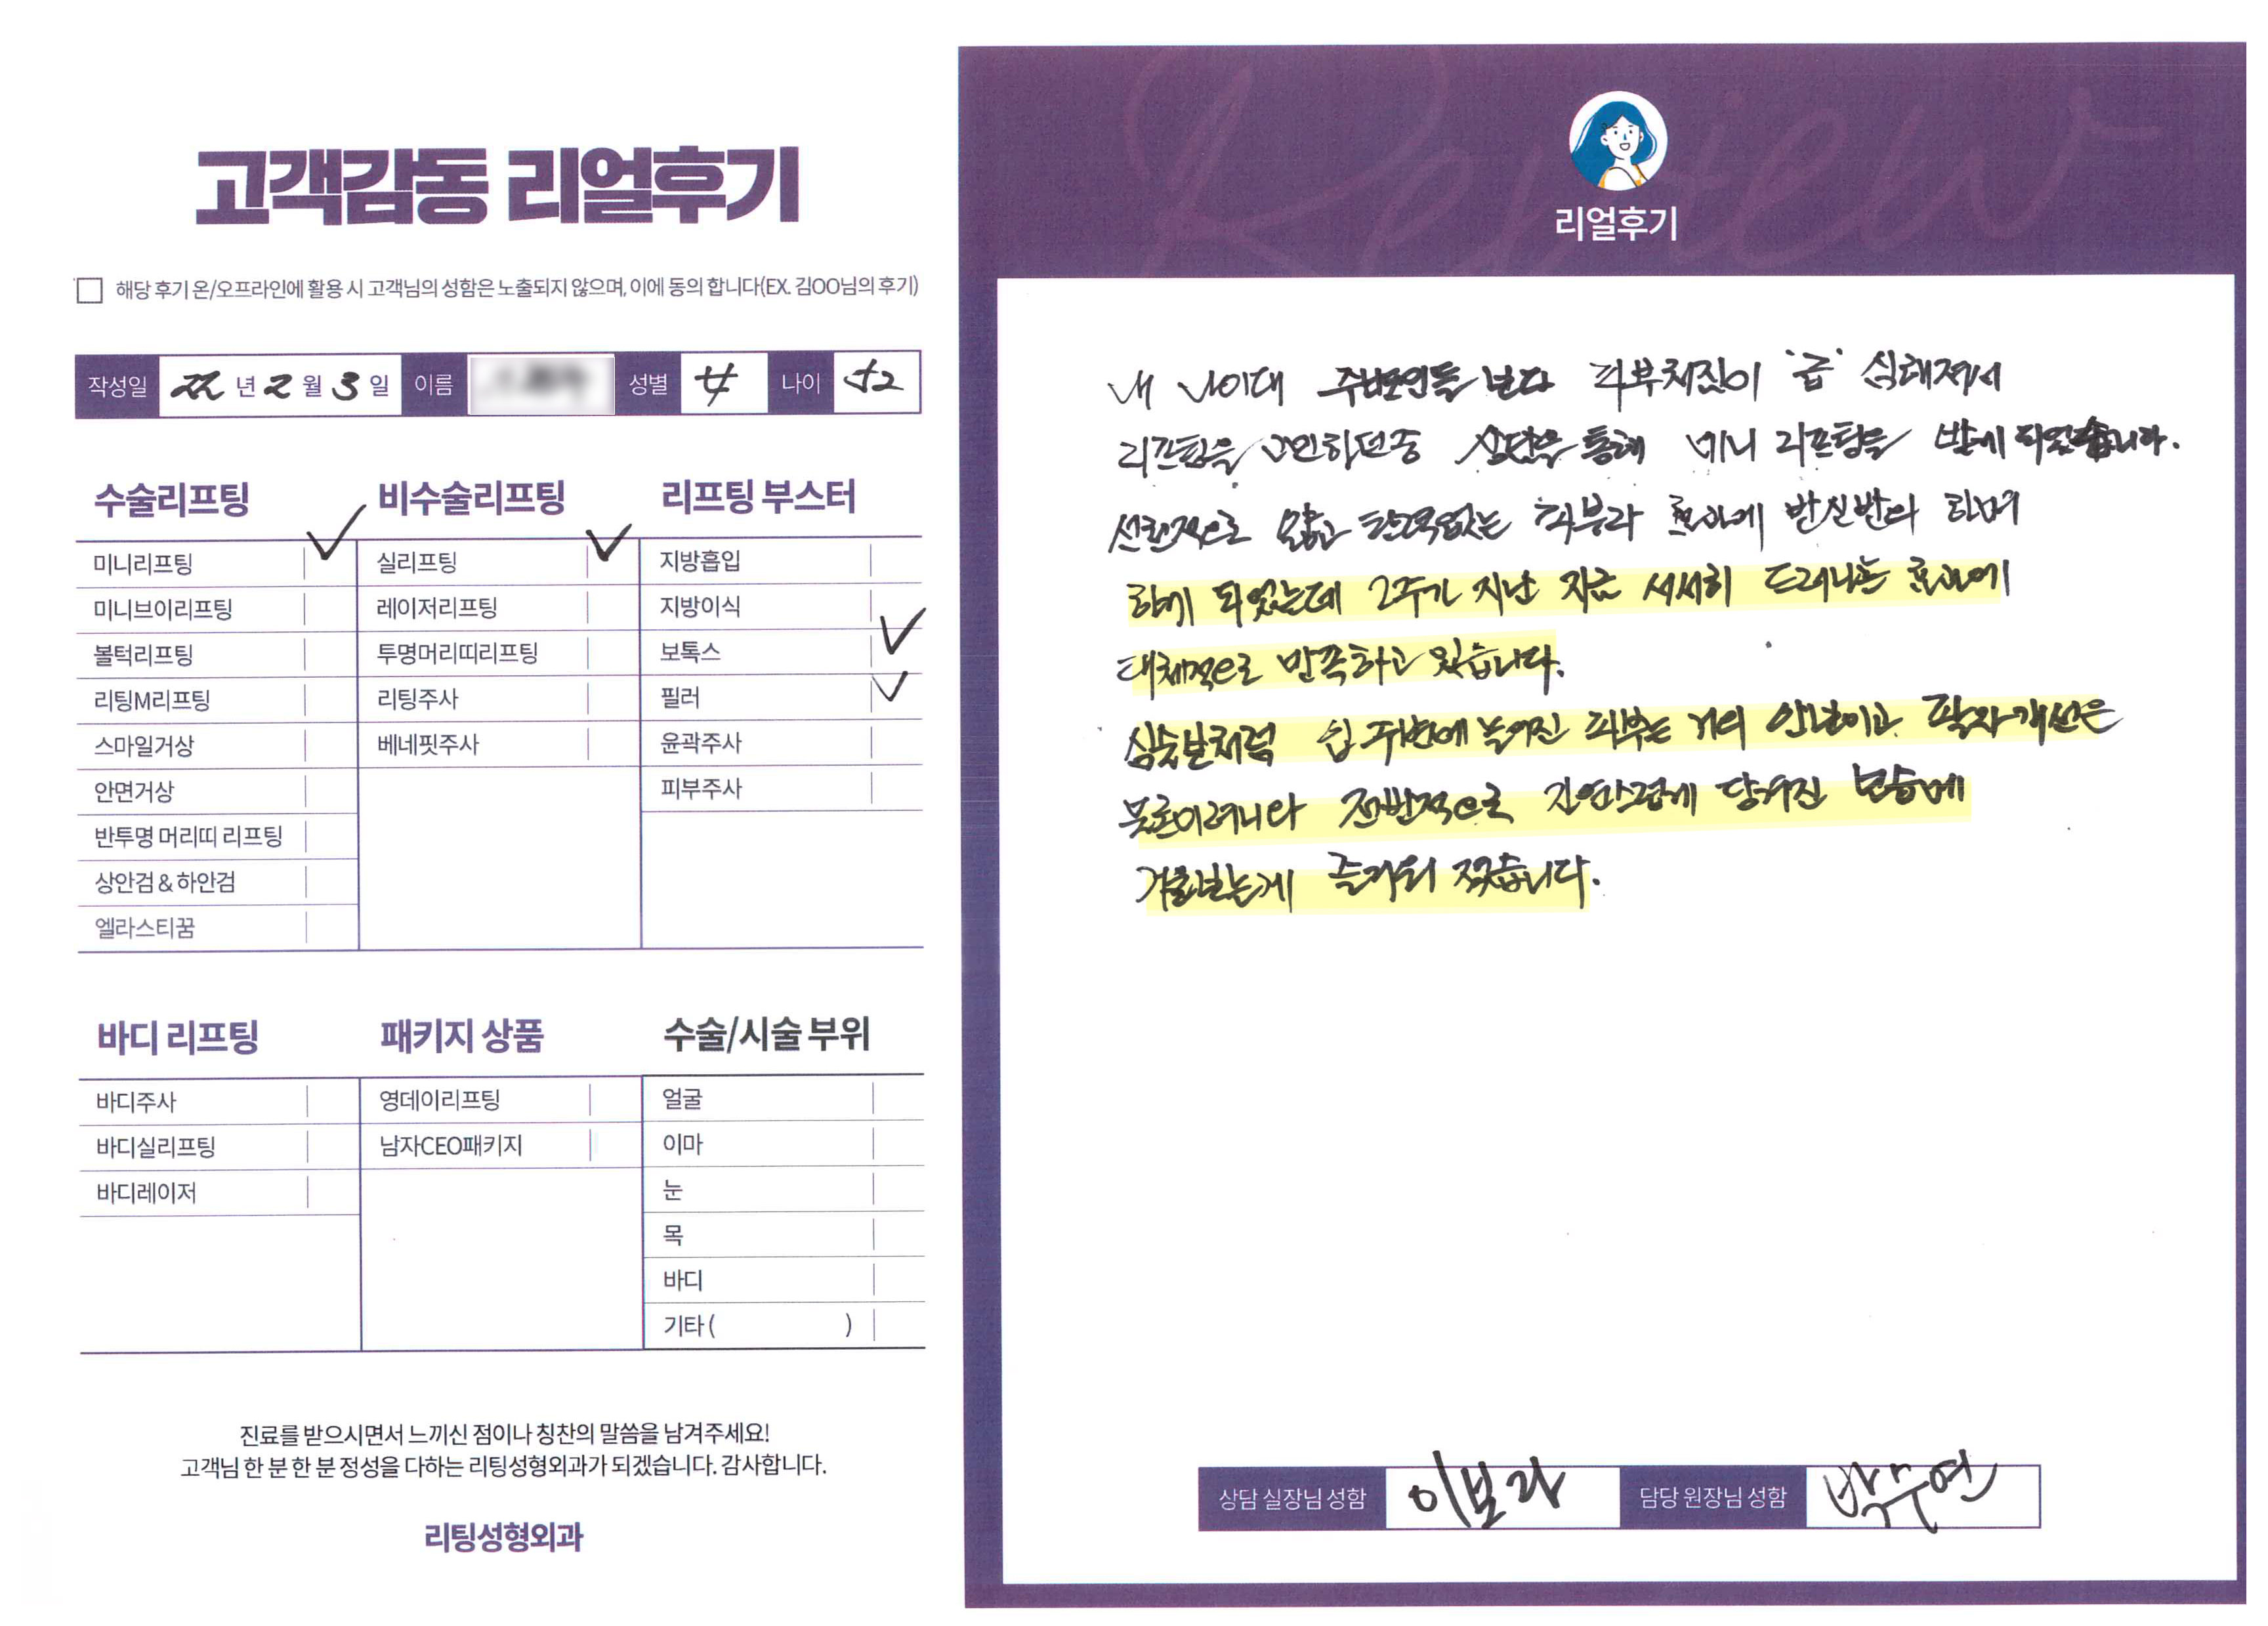 고객감동 리얼후기
해당 후기 온/오프라인에 활용 시 고객님의 성함은 노출되지 않으며, 이에 동의 합니다(EX. 김OO님의 후기)
작성일 22 년 2 월 3 일 이름 성별 女 나이 52
수술리프팅
미니리프팅 ✓
미니브이리프팅
볼턱리프팅
리팅M리프팅
스마일거상
안면거상
반투명 머리띠 리프팅
상안검 & 하안검
엘라스티꿈
비수술리프팅
실리프팅 ✓
레이저리프팅
투명머리띠리프팅
리팅주사
베네핏주사
리프팅 부스터
지방흡입
지방이식
보톡스 ✓
필러 ✓
윤곽주사
피부주사
바디 리프팅
바디주사
바디실리프팅
바디레이저
패키지 상품
영데이리프팅
남자CEO패키지
수술/시술 부위
얼굴
이마
눈
목
바디
기타 ( )
진료를 받으시면서 느끼신 점이나 칭찬의 말씀을 남겨주세요!
고객님 한 분 한 분 정성을 다하는 리팅성형외과가 되겠습니다. 감사합니다.
리팅성형외과
Review
리얼후기
내 나이대 주변인들 보다 피부처짐이 '급' 심해져서
리프팅을 고민하던중 상담을 통해 미니 리프팅을 받게 되었습니다.
선천적으로 얇고 탄력없는 피부라 효과에 반신반의 하며
하게 되었는데 2주가 지난 지금 서서히 드러나는 효과에
대체적으로 만족하고 있습니다.
심술보처럼 입 주변에 늘어진 피부는 거의 안보이고 팔자개선은
물론이려니와 전반적으로 자연스럽게 당겨진 모습에
거울보는게 즐거워 졌습니다.
상담 실장님 성함 이보라 담당 원장님 성함